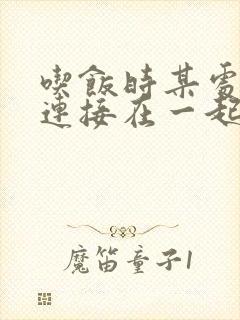 喫飯時某處
連接在一起
魔笛童子1